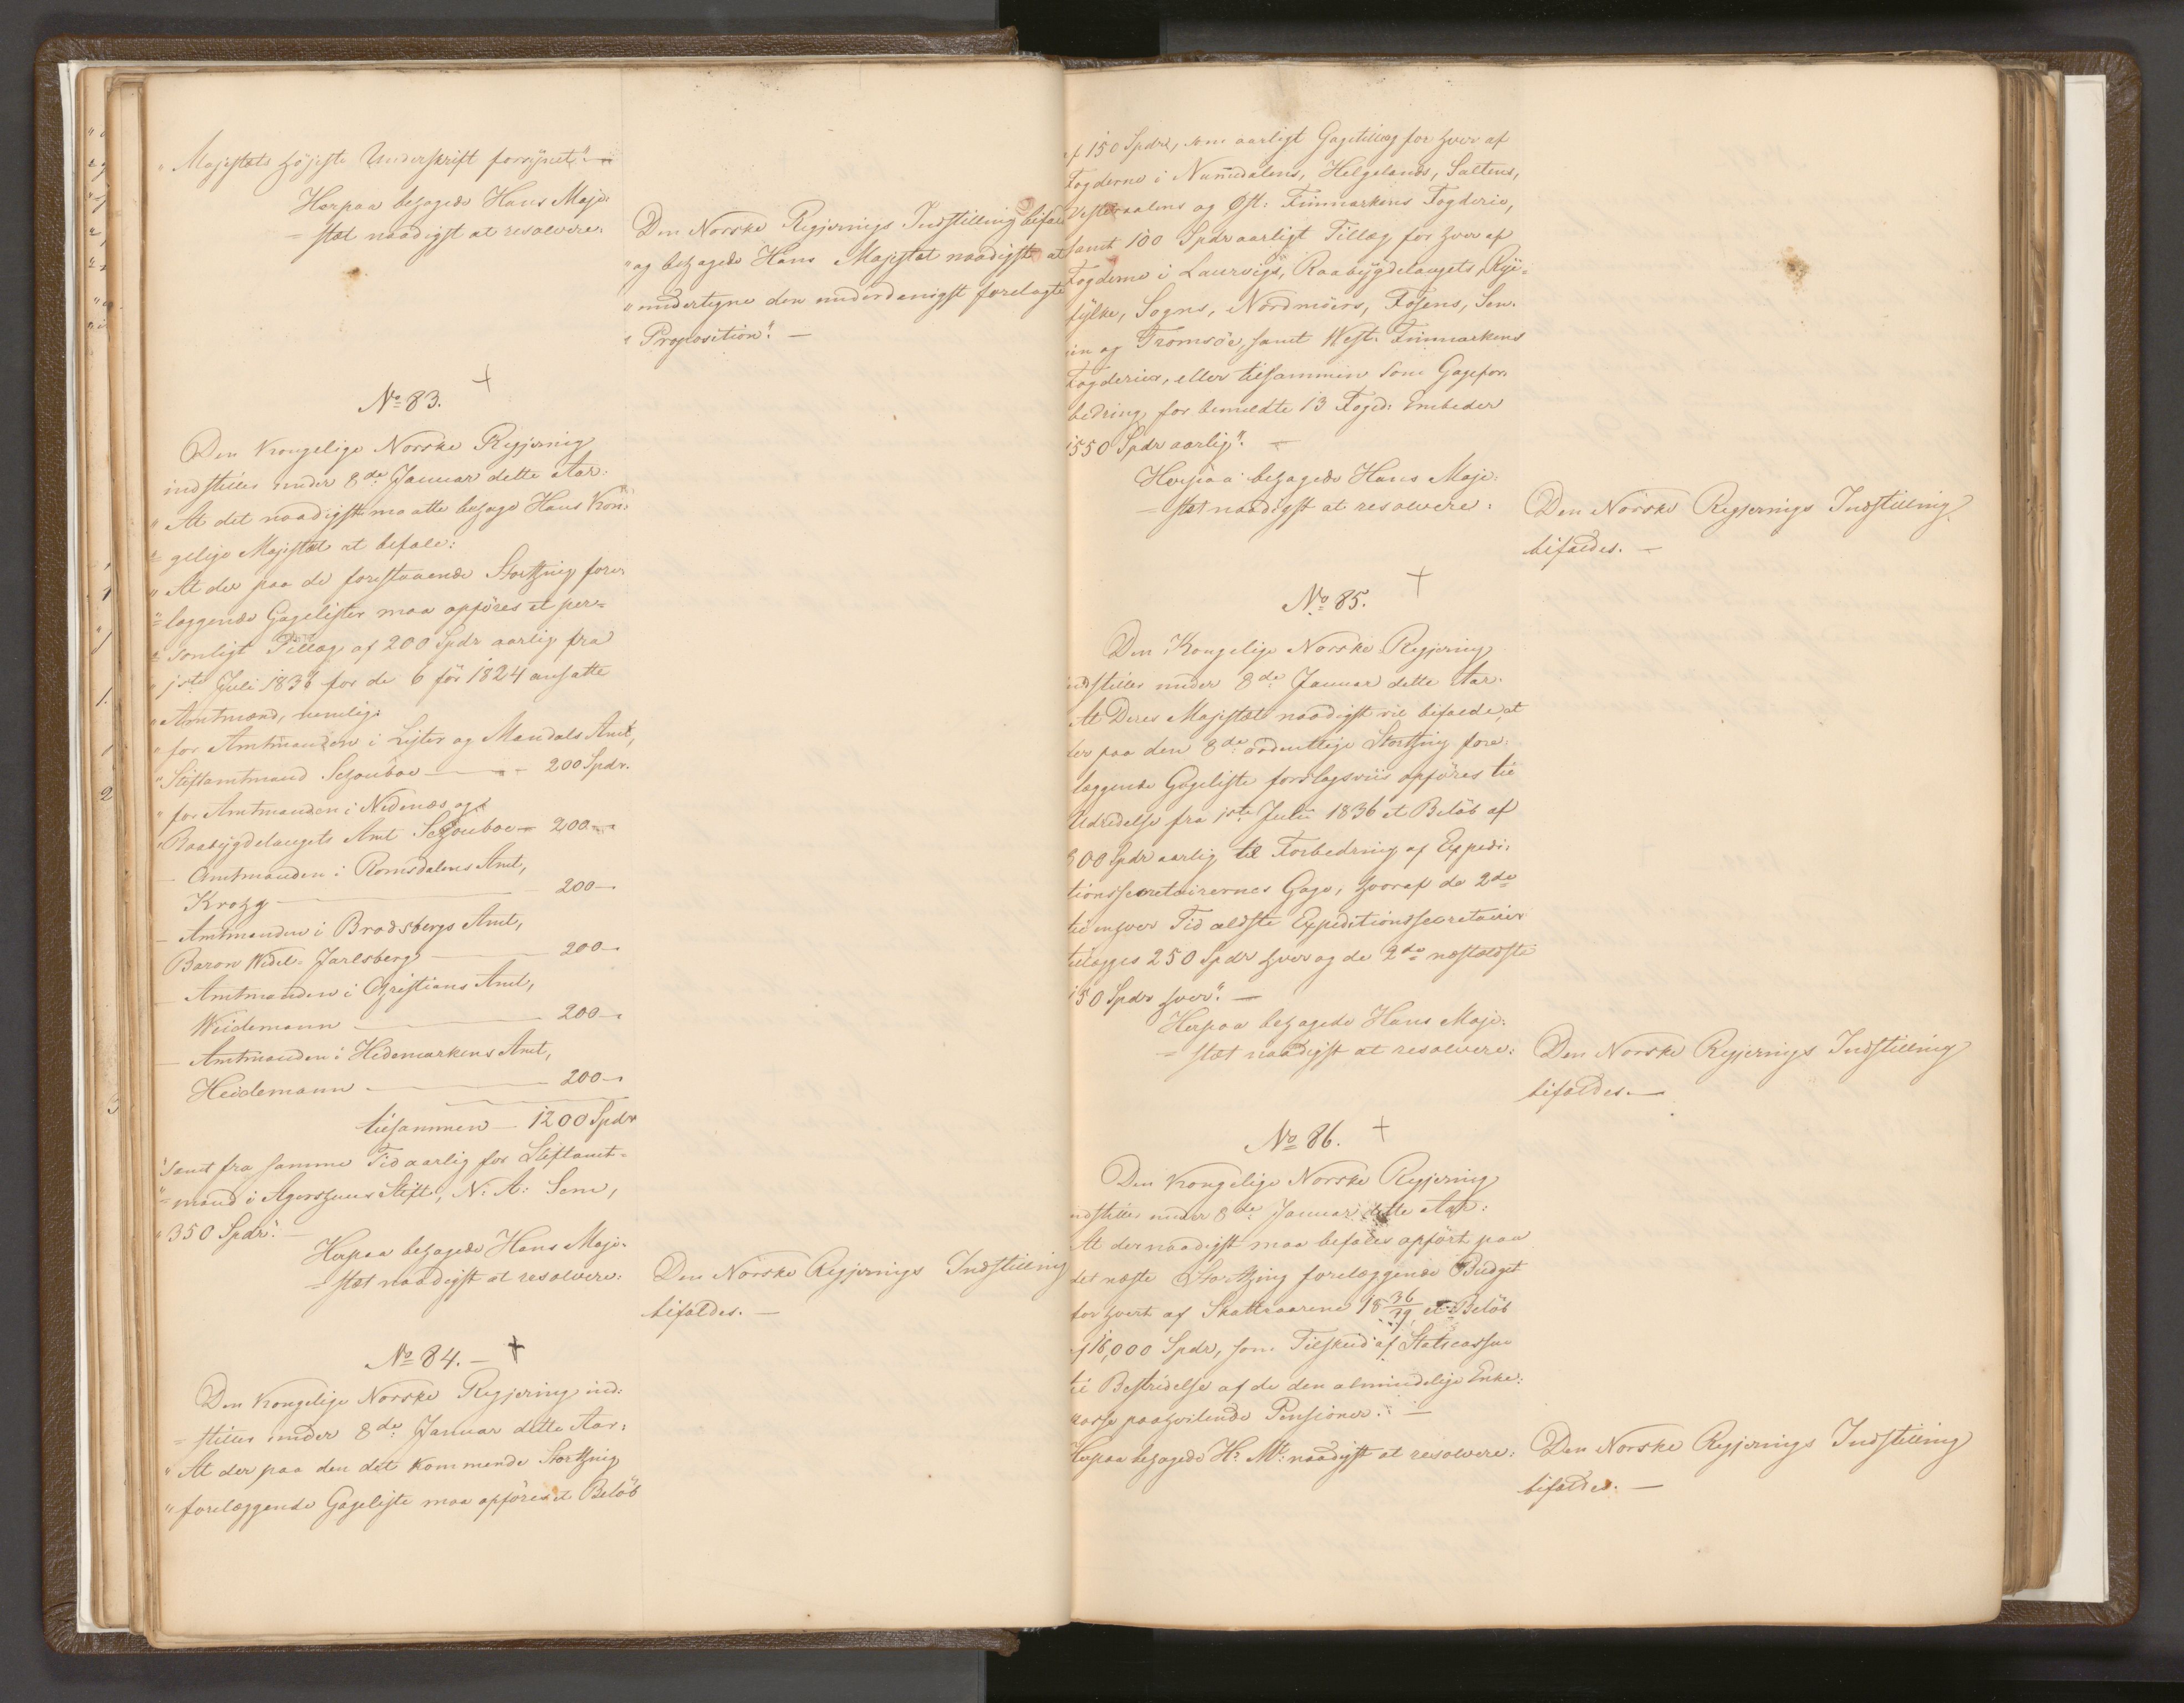 " Majestæts Høieste Underskrift forsynet". —
Herpaa behagede Hans Maje-
= stæt naadigst at resolvere:
Den Norske Regjerings Indstilling bifaldes
" og behagede Hans Majestæt naadigst at
" undertegne den underdanigst forelagte
" Proposition". —
No 83. +
Den Kongelige Norske Regjering
indstiller under 8de Januar dette Aar:
" At det naadigst maatte behage Hans Kon-
"= gelige Majestæt at befale:
" At der paa de forestaaende Storthing fore-
"= læggende Gagelister maa opføres et per-
"= sonligt Tillæg af 200 Spdr aarlig fra
" 1ste Juli 1836 for de 6 før 1824 ansatte
" Amtmænd, nemlig:
" for Amtmanden i Lister og Mandals Amt,
" Stiftamtmand Schouboe — 200 Spdr.
" for Amtmanden i Nedenæs og
" Raabygdelaugets Amt Schouboe — 200 —
— Amtmanden i Romsdalens Amt,
Krohg — 200 —
— Amtmanden i Bradsbergs Amt,
Baron Wedel-Jarlsberg — 200 —
— Amtmanden i Christians Amt,
Weidemann — 200 —
— Amtmanden i Hedemarkens Amt,
Heidemann — 200 —
tilsammen — 1200 Spdr
" samt fra samme Tid aarlig for Stiftamt-
"= mand i Agershuus Stift, N: A: Sem,
" 350 Spdr". —
Herpaa behagede Hans Maje-
= stæt naadigst at resolvere:
Den Norske Regjerings Indstilling
bifaldes. —
No 84. — +
Den Kongelige Norske Regjering ind-
= stiller under 8de Januar dette Aar:
" At der paa den det kommende Storthing
" forelæggende Gageliste maa opføres et Beløb
af 150 Spdr, som aarligt Gagetillæg for hver af
Fogderne i Nummedalens, Helgelands, Saltens,
Vesteraalens og Øst-Finmarkens Fogderie,
samt 100 Spdr aarligt Tillæg for hver af
Fogderne i Laurvigs, Raabygdelaugets, Rye-
fylke, Sogns, Nordmöers, Fosens, Sen-
ien og Tromsöe, samt West-Finmarkens
Fogderier, eller tilsammen som Gagefor-
bedring for bemeldte 13 Foged-Embeder
1550 Spdr aarlig". —
Herpaa behagede Hans Maje-
= stæt naadigst at resolvere:
Den Norske Regjerings Indstilling
bifaldes. —
No 85. +
Den Kongelige Norske Regjering
indstiller under 8de Januar dette Aar:
At Deres Majestæt naadigst vil bifalde, at
der paa den 8de ordentlige Storthing fore-
læggende Gageliste forslagsviis opføres til
Udredelse fra 1ste Juli 1836 et Beløb af
800 Spdr aarlig til Forbedring af Expedi-
tionssecretairernes Gage, hvoraf de 2de
til enhver Tid ældste Expeditionssecretairer
tillægges 250 Spdr hver og de 2de næstældste
150 Spdr hver". —
Herpaa behagede Hans Maje-
= stæt naadigst at resolvere:
Den Norske Regjerings Indstilling
bifaldes. —
No 86. +
Den Kongelige Norske Regjering
indstiller under 8de Januar dette Aar:
At der naadigst maa befales opført paa
det næste Storthing forelæggende Budget
for hvert af Skatteaarene 18 36/39 et Beløb
af 16,000 Spdr, som Tilskud af Statscassen
til Bestridelse af de den almindelige Enke-
casse paahvilende Pensioner. —
Herpaa behagede H: M: naadigst at resolvere:
Den Norske Regjerings Indstilling
bifaldes. —